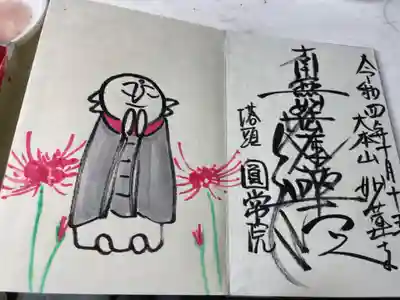 令和四年十月十五
大本山 妙蓮寺
南無妙法蓮華経
塔頭 圓常院